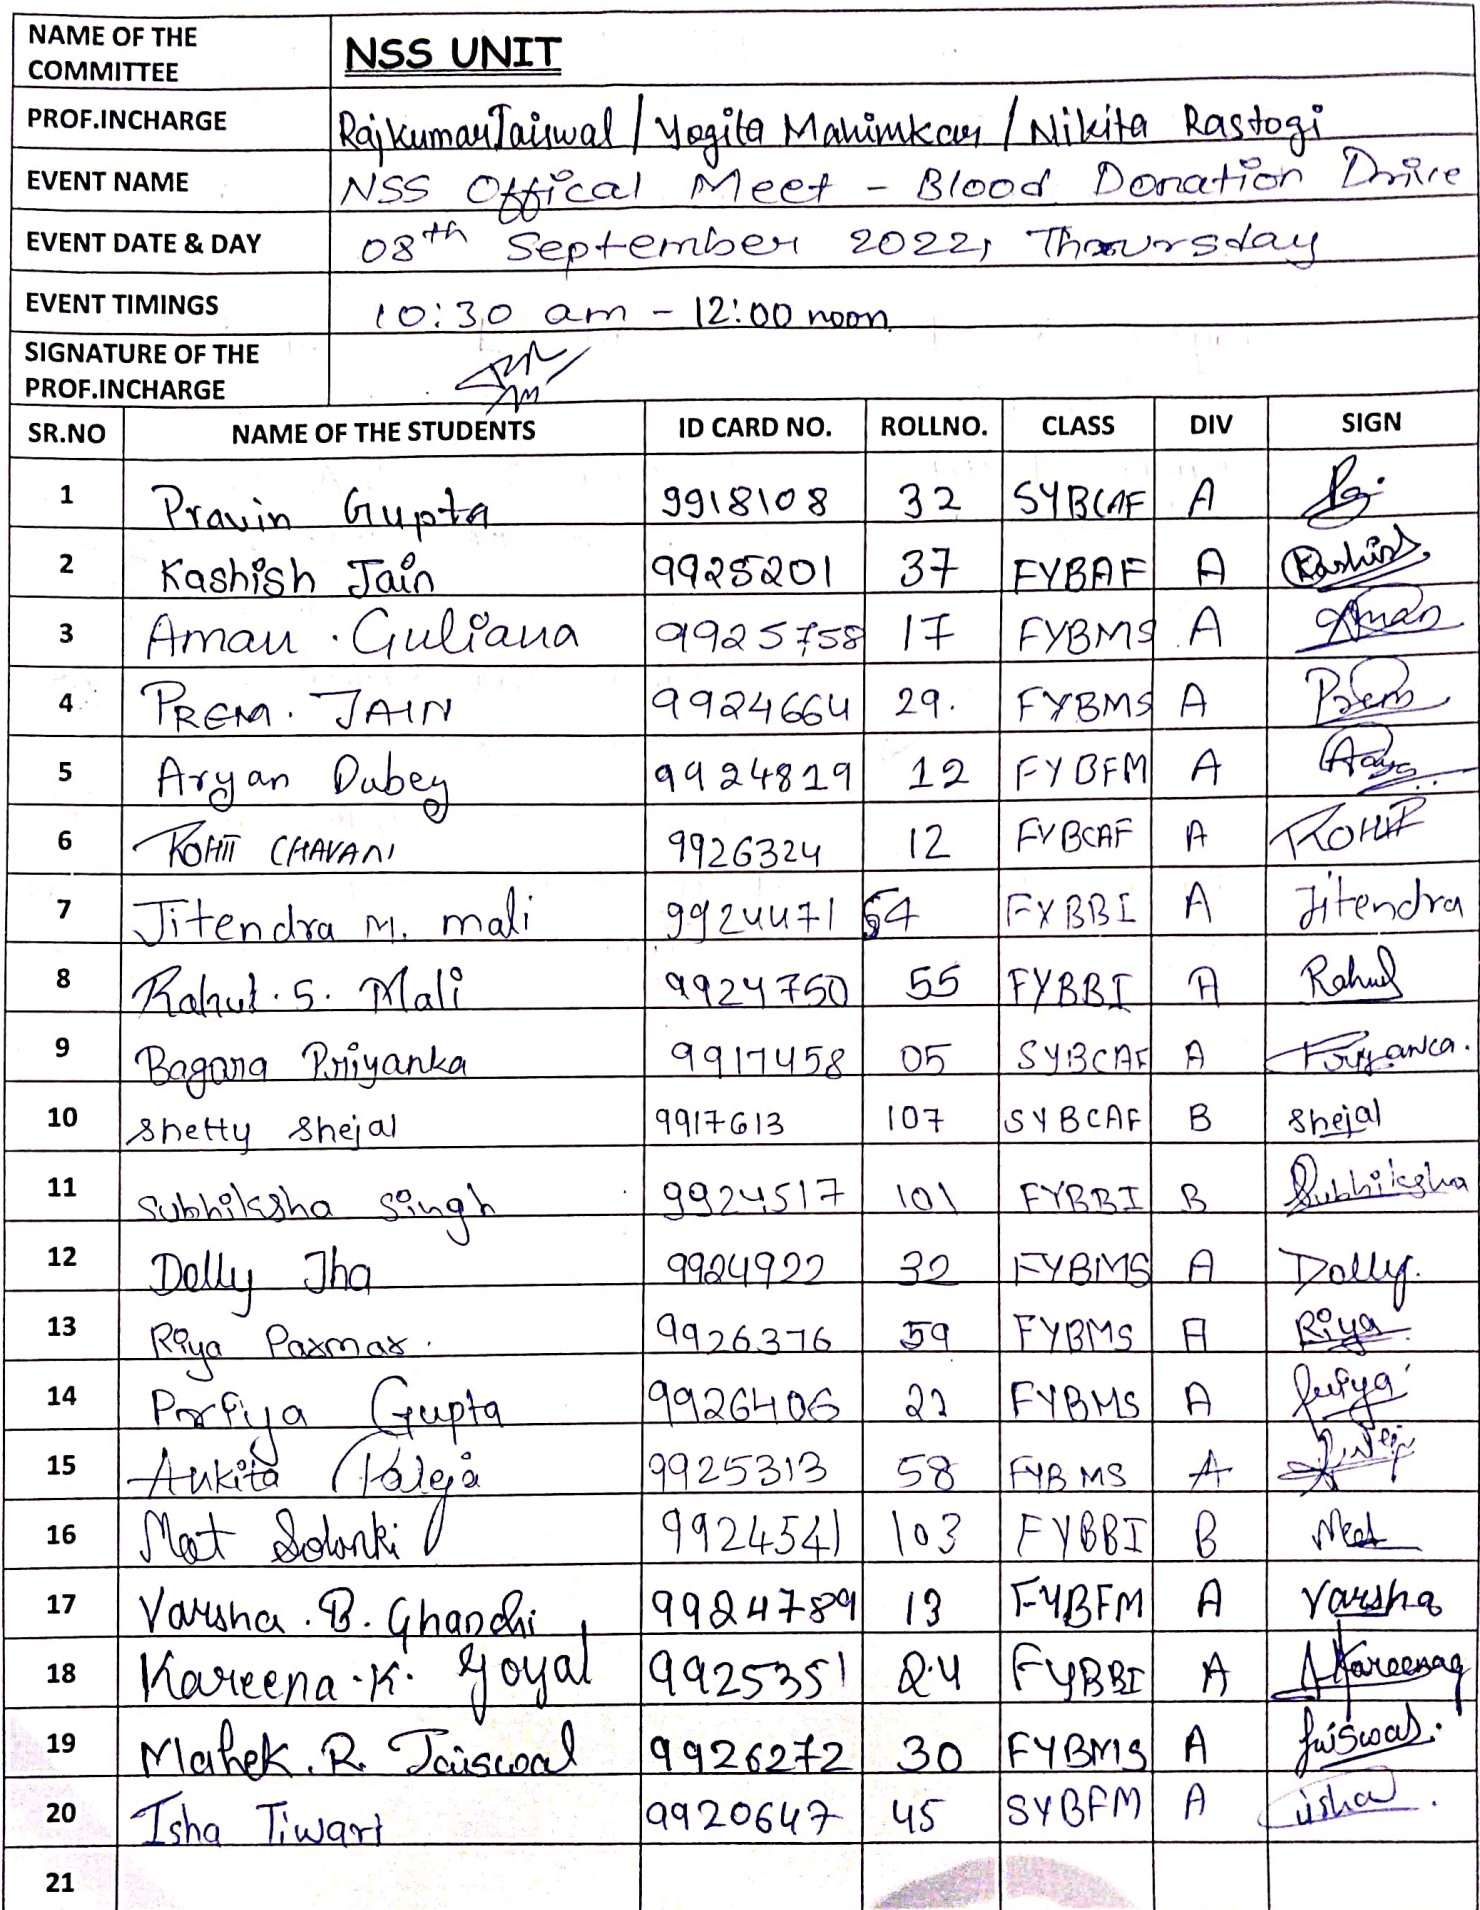 NAME OF THE COMMITTEE NSS UNIT
PROF.INCHARGE Rajkumar Jaiswal / Yogita Mahimkar / Nikita Rastogi
EVENT NAME NSS Offical Meet - Blood Donation Drive
EVENT DATE & DAY 08th September 2022, Thursday
EVENT TIMINGS 10:30 am - 12:00 noon
SIGNATURE OF THE PROF.INCHARGE
SR.NO NAME OF THE STUDENTS ID CARD NO. ROLLNO. CLASS DIV SIGN
1 Pravin Gupta 9918108 32 SYBCAF A
2 Kashish Jain 9925201 37 FYBAF A Kashish
3 Aman . Guliana 9925758 17 FYBMS A Aman
4 PREM. JAIN 9924664 29. FYBMS A Prem
5 Aryan Dubey 9924819 12 FYBFM A
6 ROHIT CHAVAN 9926324 12 FYBCAF A ROHIT
7 Jitendra M. mali 9924471 54 FYBBI A Jitendra
8 Rahul. S. Mali 9924750 55 FYBBI A Rahul
9 Bagara Priyanka 9917458 05 SYBCAF A Priyanca.
10 Shetty Shejal 9917613 107 SYBCAF B Shejal
11 Subhiksha Singh 9924517 101 FYBBI B Subhiksha
12 Dolly Jha 9924922 32 FYBMS A Dolly.
13 Riya Parmar. 9926376 59 FYBMS A Riya
14 Priya Gupta 9926406 22 FYBMS A Priya
15 Ankita Paleja 9925313 58 FYBMS A
16 Meet Solanki 9924541 103 FYBBI B Meet
17 Varsha . B. Ghandhi 9924789 13 FYBFM A Varsha
18 Kareena . K. Goyal 9925351 24 FYBBI A Kareenag
19 Mahek . R. Jaiswal 9926272 30 FYBMS A Jaiswal.
20 Isha Tiwari 9920647 45 SYBFM A isha.
21